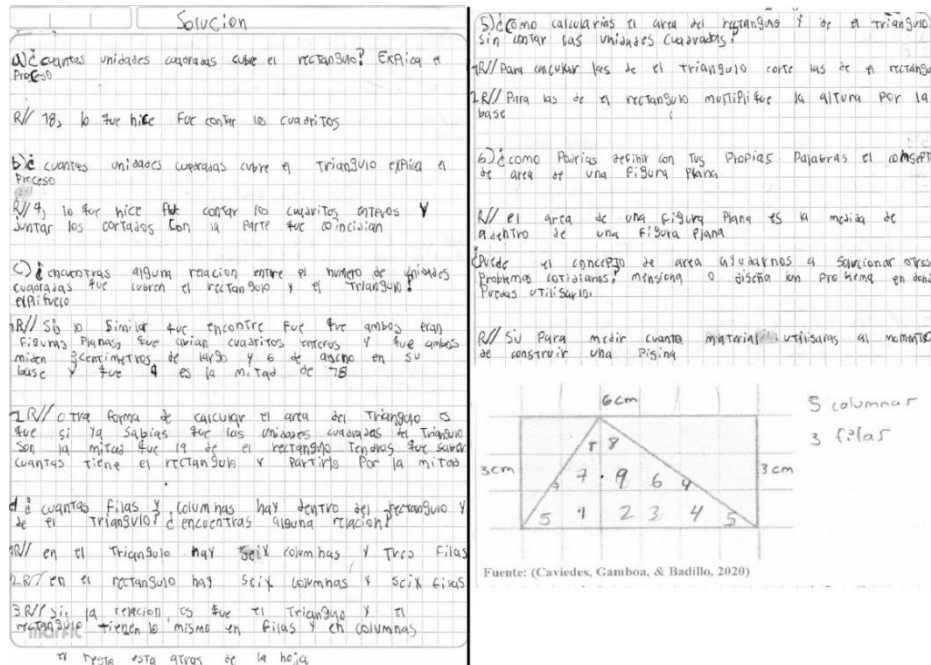 Solucion
a) ¿cuantas unidades cuadradas cubre el rectangulo? Explica el
Proceso
R// 18, lo que hice fue contar los cuadritos
b) ¿cuantas unidades cuadradas cubre el triangulo explica el
Proceso
R// 9, lo que hice fue contar los cuadritos enteros y
juntar los cortados con la parte que coincidian
c) ¿encuentras alguna relacion entre el numero de unidades
cuadradas que cubren el rectangulo y el triangulo?
1R// Si, lo similar que encontre fue que ambos eran
figuras planas, que avian cuadritos enteros y que ambos
miden 3centimetros de largo y 6 de ancho en su
base y que 9 es la mitad de 18
2R// otra forma de calcular el area del triangulo es
que si ya sabias que las unidades cuadradas del triangulo
son la mitad que la de el rectangulo tendras que saber
cuantas tiene el rectangulo y partirlo por la mitad
d ¿cuantas filas y columnas hay dentro del rectangulo y
de el triangulo? ¿encuentras alguna relacion?
1R// en el triangulo hay seix columnas y tres filas
2R// en el rectangulo hay seix columnas y seix filas
3R// Si, la relacion es que el triangulo y el
rectangulo tienen lo mismo en filas y en columnas
el resto esta atras de la hoja
5) ¿como calcularias el area del rectangulo y de el triangulo
sin contar las unidades cuadradas?
1R// Para calcular las de el triangulo corte las de el rectangu
2R// Para las de el rectangulo multiplique la altura por la
base
6) ¿como podrias definir con tus propias palabras el consept
de area de una figura plana
R// el area de una figura plana es la medida de
adentro de una figura plana
¿Puede el concepto de area ayudarnos a solucionar otros
problemas cotidianos? mensiona o diseña un problema en dond
puedas utilisarlo.
R// Si Para medir cuanto material utilisaras al momento
de construir una pisina
6cm
5 columnas
3 filas
3cm
3cm
8 8
7 7 9 6 9
5 1 2 3 4 5
Fuente: (Caviedes, Gamboa, & Badillo, 2020)